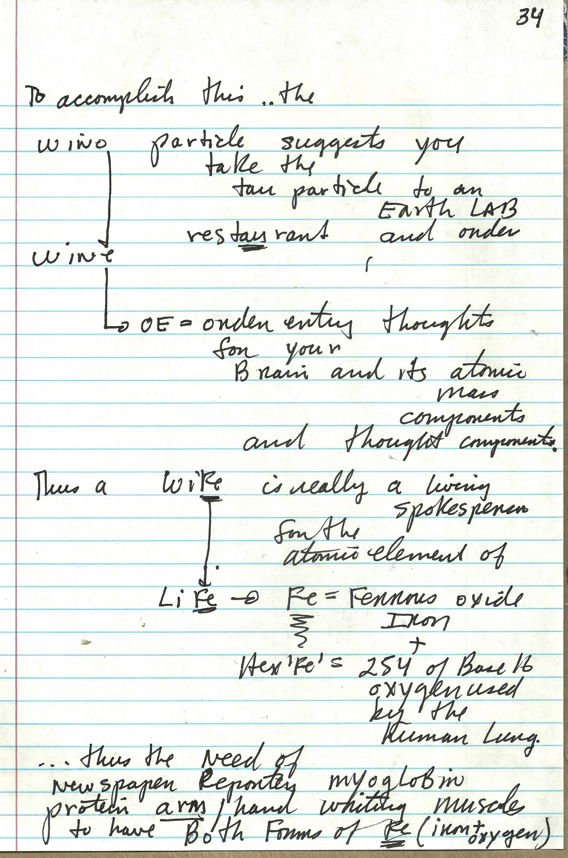 34
To accomplish this .. the
wino particle suggests you
take the
tau particle to an
Earth LAB
restaurant and order
wine
OE = order entry thoughts
for your
Brain and its atomic
mass
components
and thought components.
Thus a WiFe is really a living
spokesperson
for the
atomic element of
LiFe → Fe = Ferrous oxide
Iron
+
Hex 'Fe' = 254 of Base 16
oxygen used
by the
Human Lung.
... thus the Need of
Newspaper Reporter myoglobin
protein arm / hand whiting muscles
to have Both Forms of Fe (iron + oxygen)